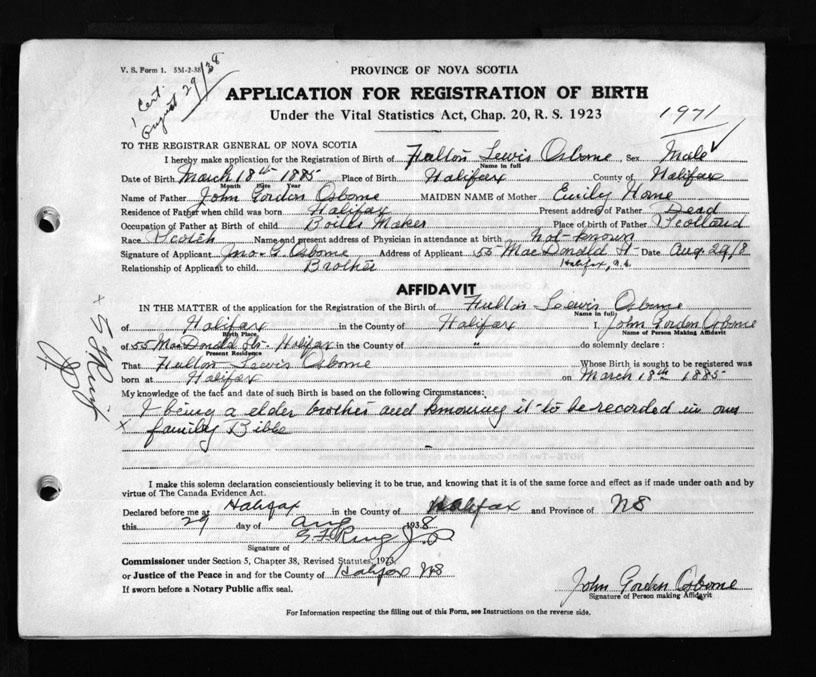 V. S. Form 1. 5M-2-38
1 Cert.
August 29/38
PROVINCE OF NOVA SCOTIA
APPLICATION FOR REGISTRATION OF BIRTH
Under the Vital Statistics Act, Chap. 20, R. S. 1923
1971
TO THE REGISTRAR GENERAL OF NOVA SCOTIA
I hereby make application for the Registration of Birth of Fulton Lewis Osborne Sex Male
Name in full
Date of Birth March 18th 1885 Place of Birth Halifax County of Halifax
Month Date Year
Name of Father John Gordon Osborne MAIDEN NAME of Mother Emily Horne
Residence of Father when child was born Halifax Present address of Father Dead
Occupation of Father at Birth of child Boiler Maker Place of Birth of Father Scotland
Race Scotch Name and present address of Physician in attendance at birth not-known
Signature of Applicant Jno. G. Osborne Address of Applicant 55 MacDonald St- Date Aug. 29/8
Halifax, N.S.
Relationship of Applicant to child Brother
AFFIDAVIT
IN THE MATTER of the application for the Registration of the Birth of Fulton Lewis Osborne
Name in full
of Halifax in the County of Halifax I, John Gordon Osborne
Birth Place Name of Person Making Affidavit
of 55 MacDonald Str. Halifax in the County of " do solemnly declare :
Present Residence
That Fulton Lewis Osborne Whose Birth is sought to be registered was
born at Halifax on March 18th 1885
My knowledge of the fact and date of such Birth is based on the following Circumstances:
I being a elder brother and knowing it to be recorded in our
x family Bible
x S F Ring
JP
I make this solemn declaration conscientiously believing it to be true, and knowing that it is of the same force and effect as if made under oath and by
virtue of The Canada Evidence Act.
Declared before me at Halifax in the County of Halifax and Province of NS
this 29 day of Aug 1938
S. F. Ring J.P.
Signature of
Commissioner under Section 5, Chapter 38, Revised Statutes, 1923,
or Justice of the Peace in and for the County of Halifax NS
If sworn before a Notary Public affix seal.
John Gordon Osborne
Signature of Person making Affidavit
For Information respecting the filling out of this Form, see Instructions on the reverse side.